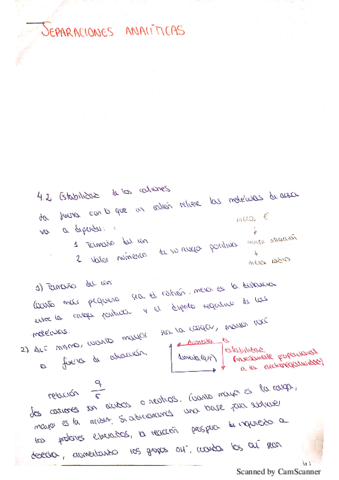 SEPARACIONES ANALÍTICAS
4.2 Estabilidad de los cationes
La fuerza con lo que un catión retiene las moléculas de agua
va a depender:
1 Tamaño del ion
2 Valor numérico de su carga positiva
1) Tamaño del ion
Cuanto más pequeño sea el catión, menor es la distancia
entre la carga positiva y el dipolo negativo de las
moléculas.
2) Así mismo, cuanto mayor sea la carga, mayor será
la fuerza de atracción.
Aumenta
Estabilidad
inversamente proporcional
relación q
r
Los cationes son ácidos o neutros. Cuanto mayor es la carga,
mayor es la acidez. Si adicionamos una base para
los protones liberados, la reacción de izquierda a
derecha, aumentando los grupos OH, cuando los OH sean
Scanned by CamScanner